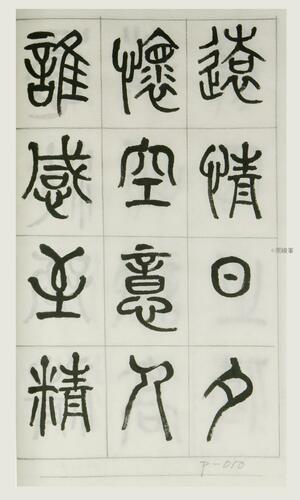 遠情日夕
懷空意久
誰感至精
P-050